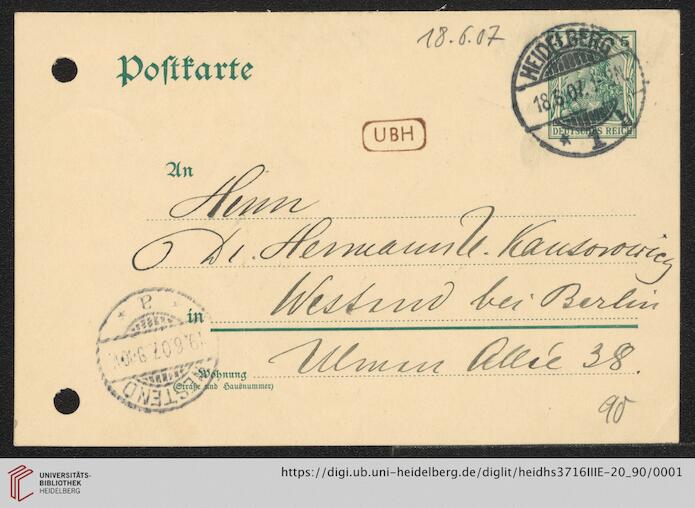 18.6.07
Postkarte
HEIDELBERG
5
18.6.07.
DEUTSCHES REICH
* 1 b
UBH
An
Herrn
Dr. Hermann U. Kantorowicz
Westend bei Berlin
in
Ulmen Allée 38.
Wohnung
(Straße und Hausnummer)
* a *
19.6.07. 9-10V.
WESTEND
90
UNIVERSITÄTS-
BIBLIOTHEK
HEIDELBERG
https://digi.ub.uni-heidelberg.de/diglit/heidhs3716IIIE-20_90/0001